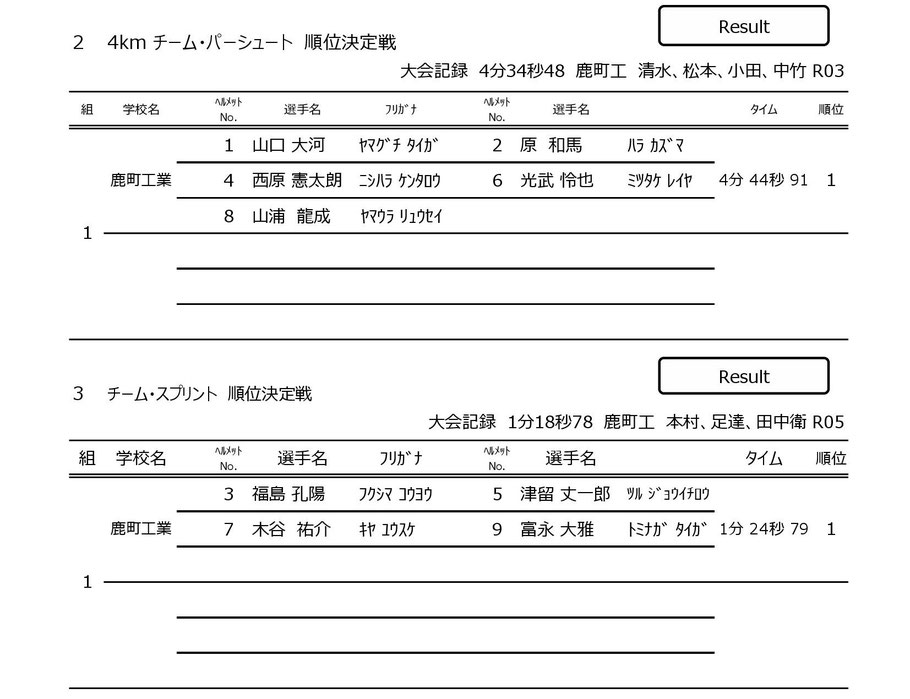 Result
2 4km チーム・パーシュート 順位決定戦
大会記録 4分34秒48 鹿町工 清水、松本、小田、中竹 R03
組 学校名 ﾍﾙﾒｯﾄ No. 選手名 ﾌﾘｶﾞﾅ ﾍﾙﾒｯﾄ No. 選手名 タイム 順位
1 山口 大河 ﾔﾏｸﾞﾁ ﾀｲｶﾞ 2 原 和馬 ﾊﾗ ｶｽﾞﾏ
鹿町工業 4 西原 憲太朗 ﾆｼﾊﾗ ｹﾝﾀﾛｳ 6 光武 怜也 ﾐﾂﾀｹ ﾚｲﾔ 4分 44秒 91 1
8 山浦 龍成 ﾔﾏｳﾗ ﾘｭｳｾｲ
1
Result
3 チーム・スプリント 順位決定戦
大会記録 1分18秒78 鹿町工 本村、足達、田中衛 R05
組 学校名 ﾍﾙﾒｯﾄ No. 選手名 ﾌﾘｶﾞﾅ ﾍﾙﾒｯﾄ No. 選手名 タイム 順位
3 福島 孔陽 ﾌｸｼﾏ ｺｳﾖｳ 5 津留 丈一郎 ﾂﾙ ｼﾞｮｳｲﾁﾛｳ
鹿町工業 7 木谷 祐介 ｷﾔ ﾕｳｽｹ 9 富永 大雅 ﾄﾐﾅｶﾞ ﾀｲｶﾞ 1分 24秒 79 1
1